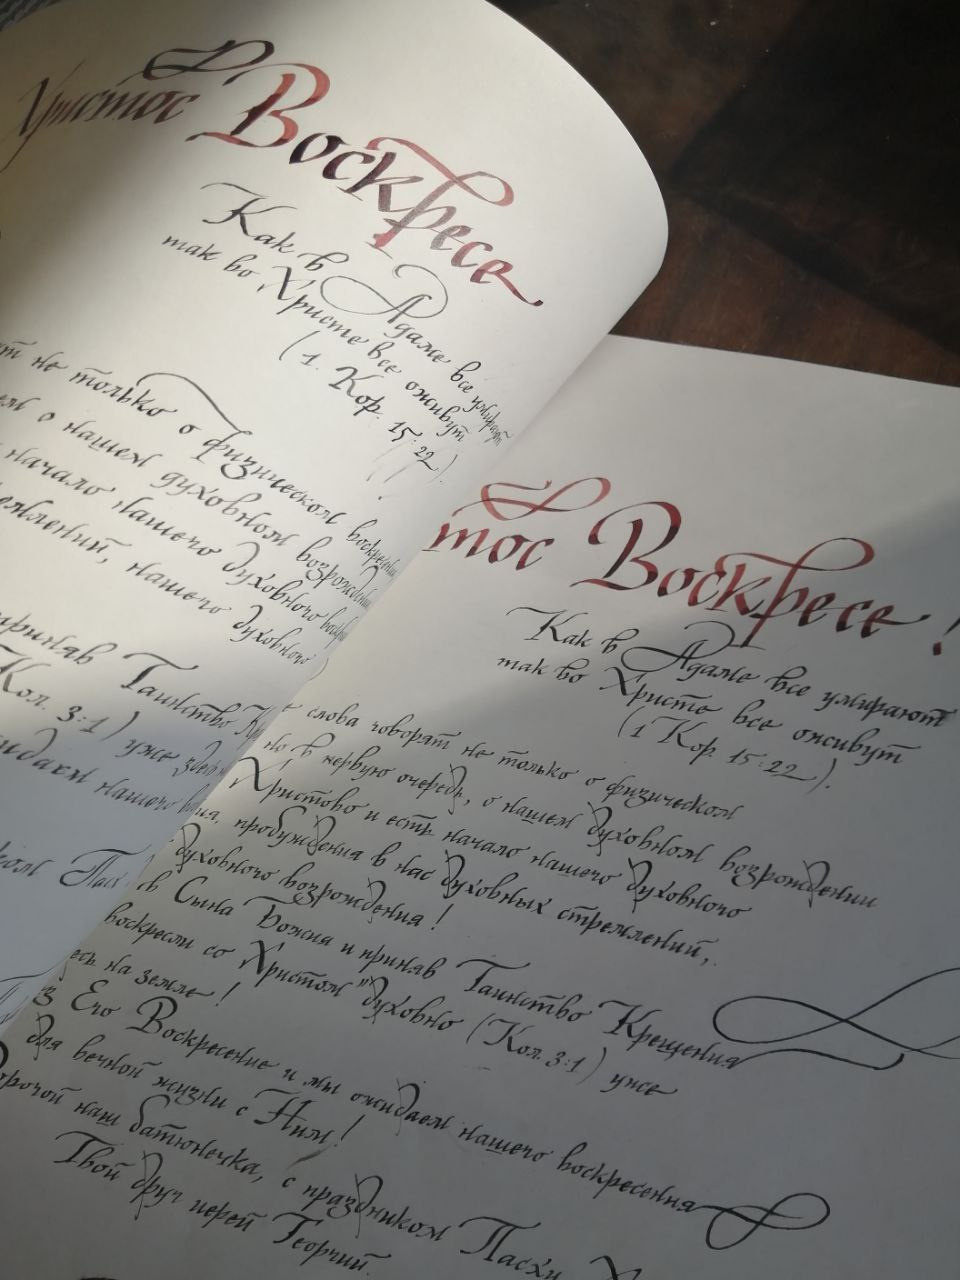 Христос Воскресе
Как в Адаме все умирают
так во Христе все оживут
(1. Кор. 15:22).
не только о физическом
о нашем духовном возрождении
начало нашего духовного
нашего духовного
приняв Таинство
Кол. 3:1) уже здесь
нашего
Пасх
тос Воскресе!
Как в Адаме все умирают
так во Христе все оживут
(1 Кор. 15:22).
е слова говорят не только о физическом
но в первую очередь, о нашем духовном возрождении
Христово и есть начало нашего духовного
пробуждения в нас духовных стремлений,
духовного возрождения!
в Сына Божия и приняв Таинство Крещения
воскресли со Христом "духовно (Кол. 3:1) уже
есь на земле!
з Его Воскресение и мы ожидаем нашего воскресения
для вечной жизни с Ним!
орогой наш батюнечка, с праздником Пасхи Х
Твой друг иерей Георгий.